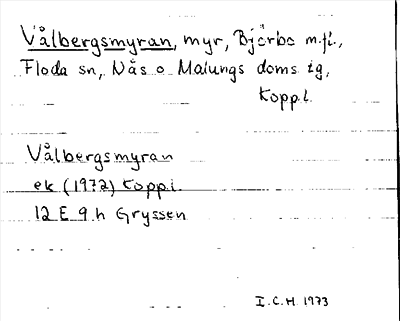 Vålbergsmyran, myr, Björbo m.fl.,
Floda sn, Nås o Malungs doms. tg,
Kopp.l.
Vålbergsmyran
ek (1972) Kopp.l.
12 E 9 h Gryssen
I.C.H. 1973